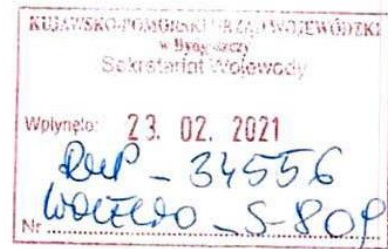 KUJAWSKO-POMORSKI URZĄD WOJEWÓDZKI
w Bydgoszczy
Sekretariat Wojewody
Wpłynęło: 23. 02. 2021
34556
Nr